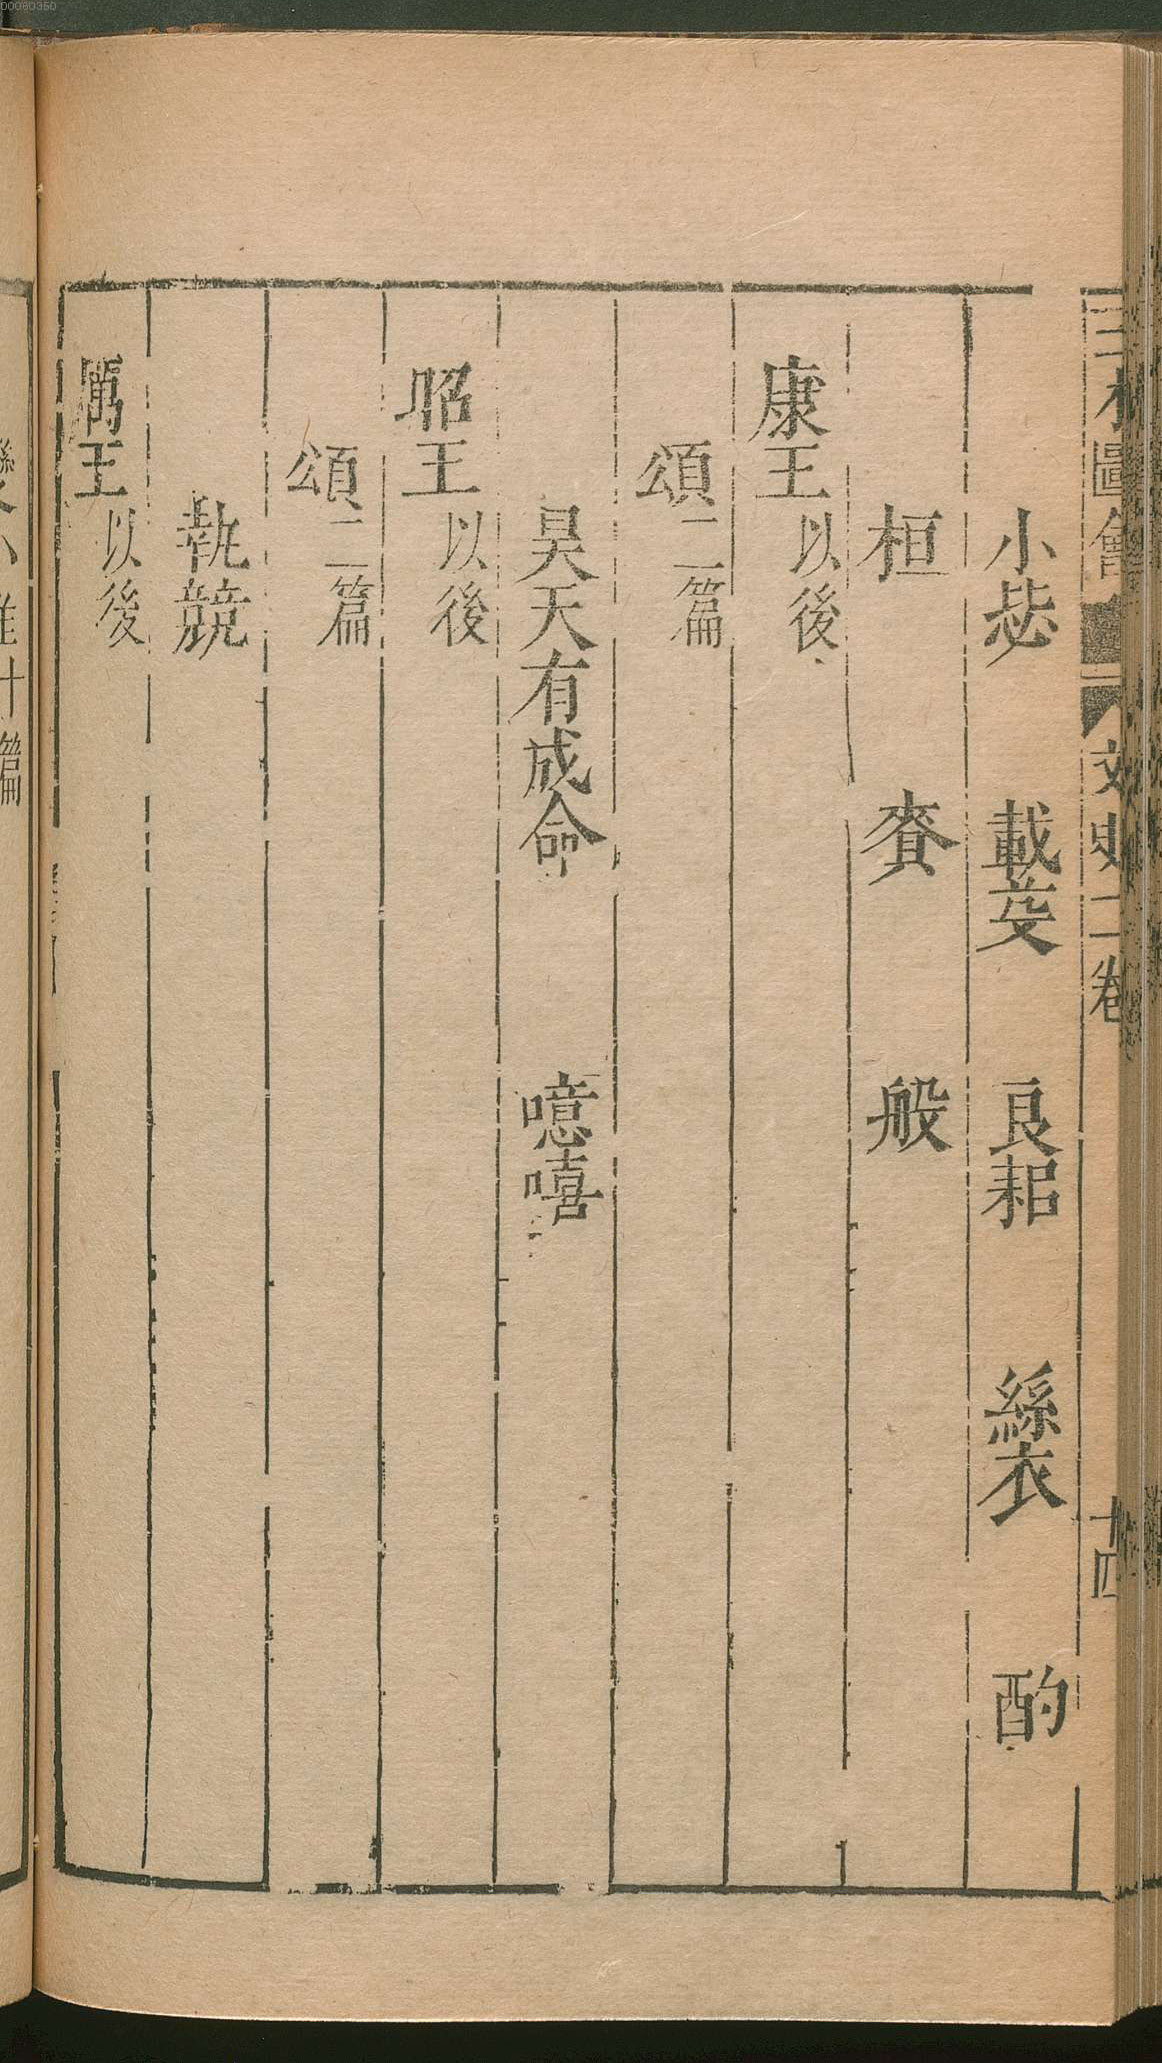 00080350
三才圖會 文史二卷 廿四
小毖 載芟 良耜 絲衣 酌
桓 賚 般
康王以後
頌二篇
昊天有成命 噫嘻
昭王以後
頌二篇
執競
厲王以後
變小雅十篇